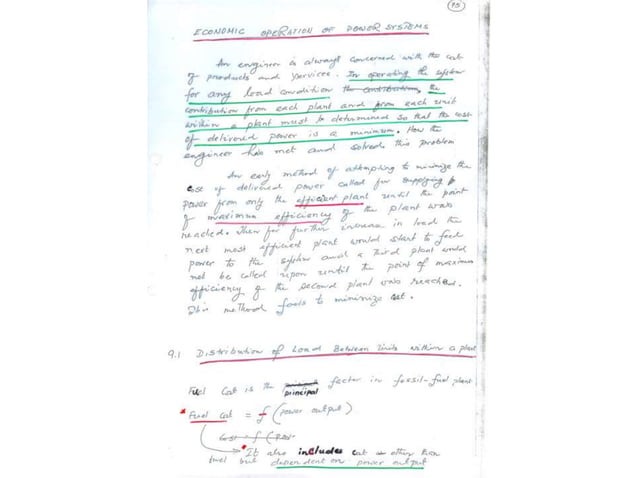 95
ECONOMIC OPERATION OF POWER SYSTEMS
An engineer is always concerned with the cost
of products and services. In operating the system
for any load condition the contribution the
contribution from each plant and from each unit
within a plant must be determined so that the cost
of delivered power is a minimum. How the
engineer has met and solved this problem
An early method of attempting to minimize the
cose of delivered power called for supplying p
power from only the efficient plant until the point
of maximum efficiency of the plant was
reached. Then for further increase in load the
next most efficient plant would start to feed
power to the system and a third plant would
not be called upon until the point of maximum
efficiency of the second plant was reached.
This method fools to minimize cost.
9.1 Distribution of Load Between Units within a plant
Fuel Cost is the principal factor in fossil-fuel plant
Fuel cost = f (power output)
Cost = f (
It also includes cost other than
fuel but dependent on power output